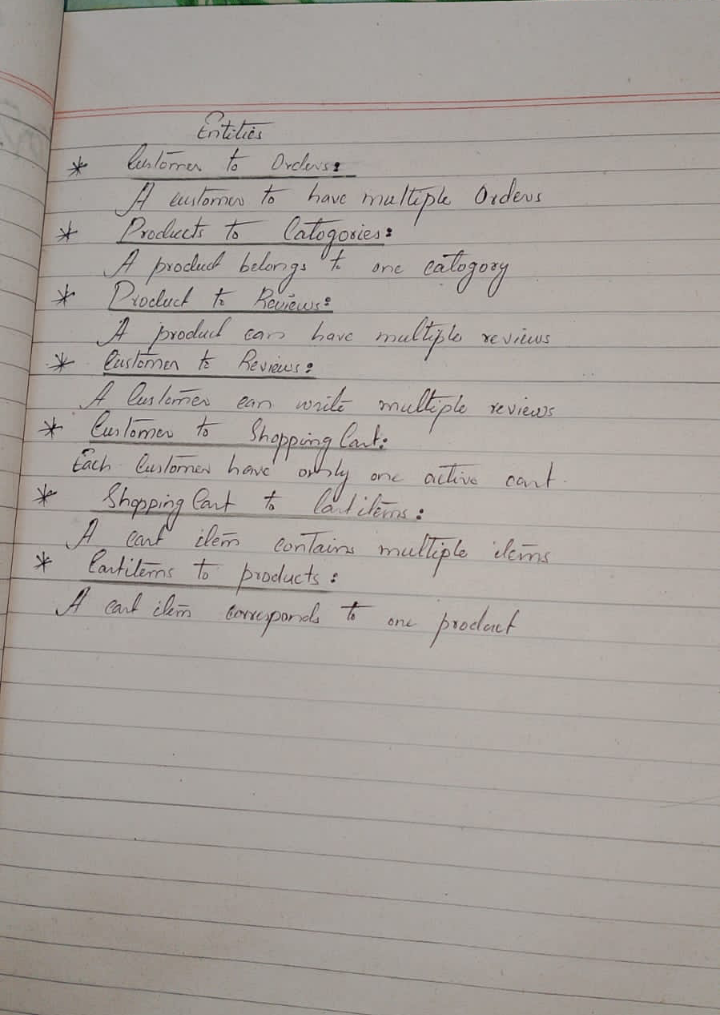 Entities
* Customer to Orders:
A customer to have multiple Orders
* Products to Catogories:
A product belongs to one catogory
* Product to Reviews:
A product can have multiple reviews
* Customer to Reviews:
A Customer can write multiple reviews
* Customer to Shopping Cart:
Each Customer have only one active cart.
* Shopping Cart to Cartitems:
A cart item contains multiple items
* Cartitems to products:
A cart item corresponds to one product